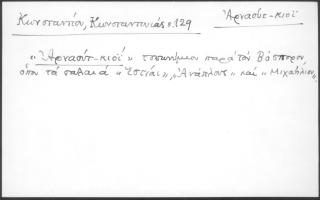 Κωνσταντίου, Κωνσταντινιάς σ. 129 Ἀρναούτ-κιοϊ
"Ἀρναούτ-κιοϊ" τοπωνύμιον παρὰ τὸν Βόσπορον,
ὅπου τὰ παλαιὰ "Ἑστίαι", "Ἀνάπλους" καὶ "Μιχαήλιον"